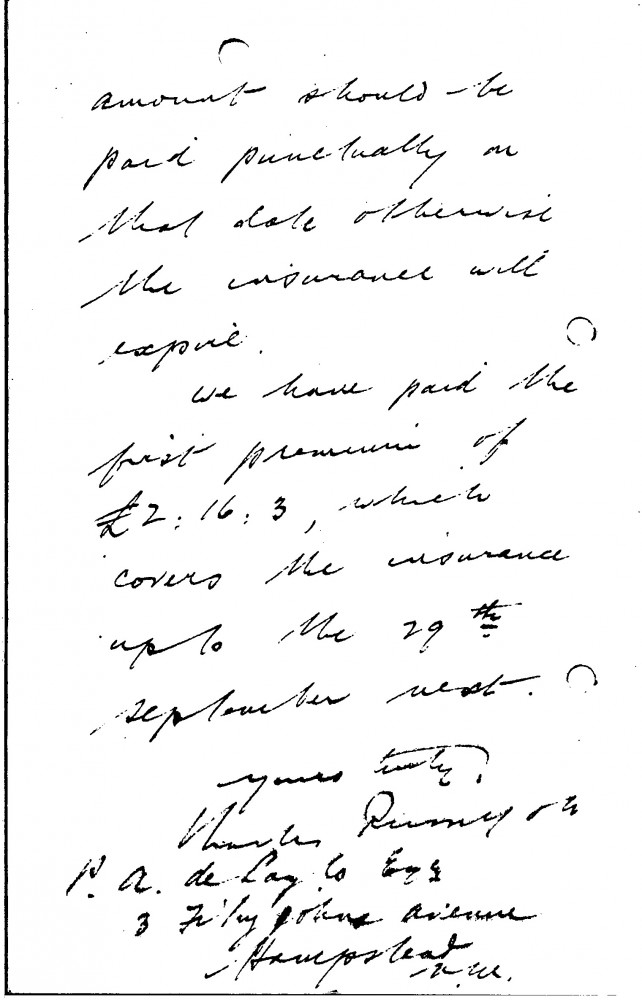 amount should be
paid punctually on
that date otherwise
the insurance will
expire.
We have paid the
first premium of
£2:16:3, which
covers the insurance
up to the 29th
September next.
Yours truly,
Charles Russell & Co
P. A. de László Esq
3 Fitzjohns Avenue
Hampstead
N.W.